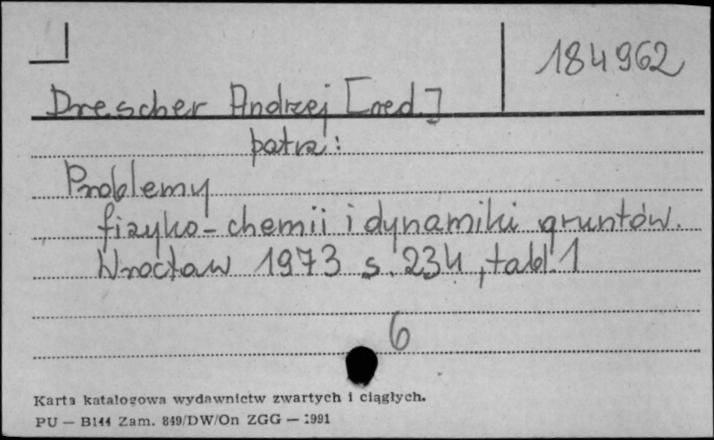 184962
Drescher Andrzej [red.]
patrz:
Problemy
fizyko-chemii i dynamiki gruntów.
Wrocław 1973 s. 234, tabl. 1
6
Karta katalogowa wydawnictw zwartych i ciągłych.
PU — B144 Zam. 849/DW/On ZGG — 1991